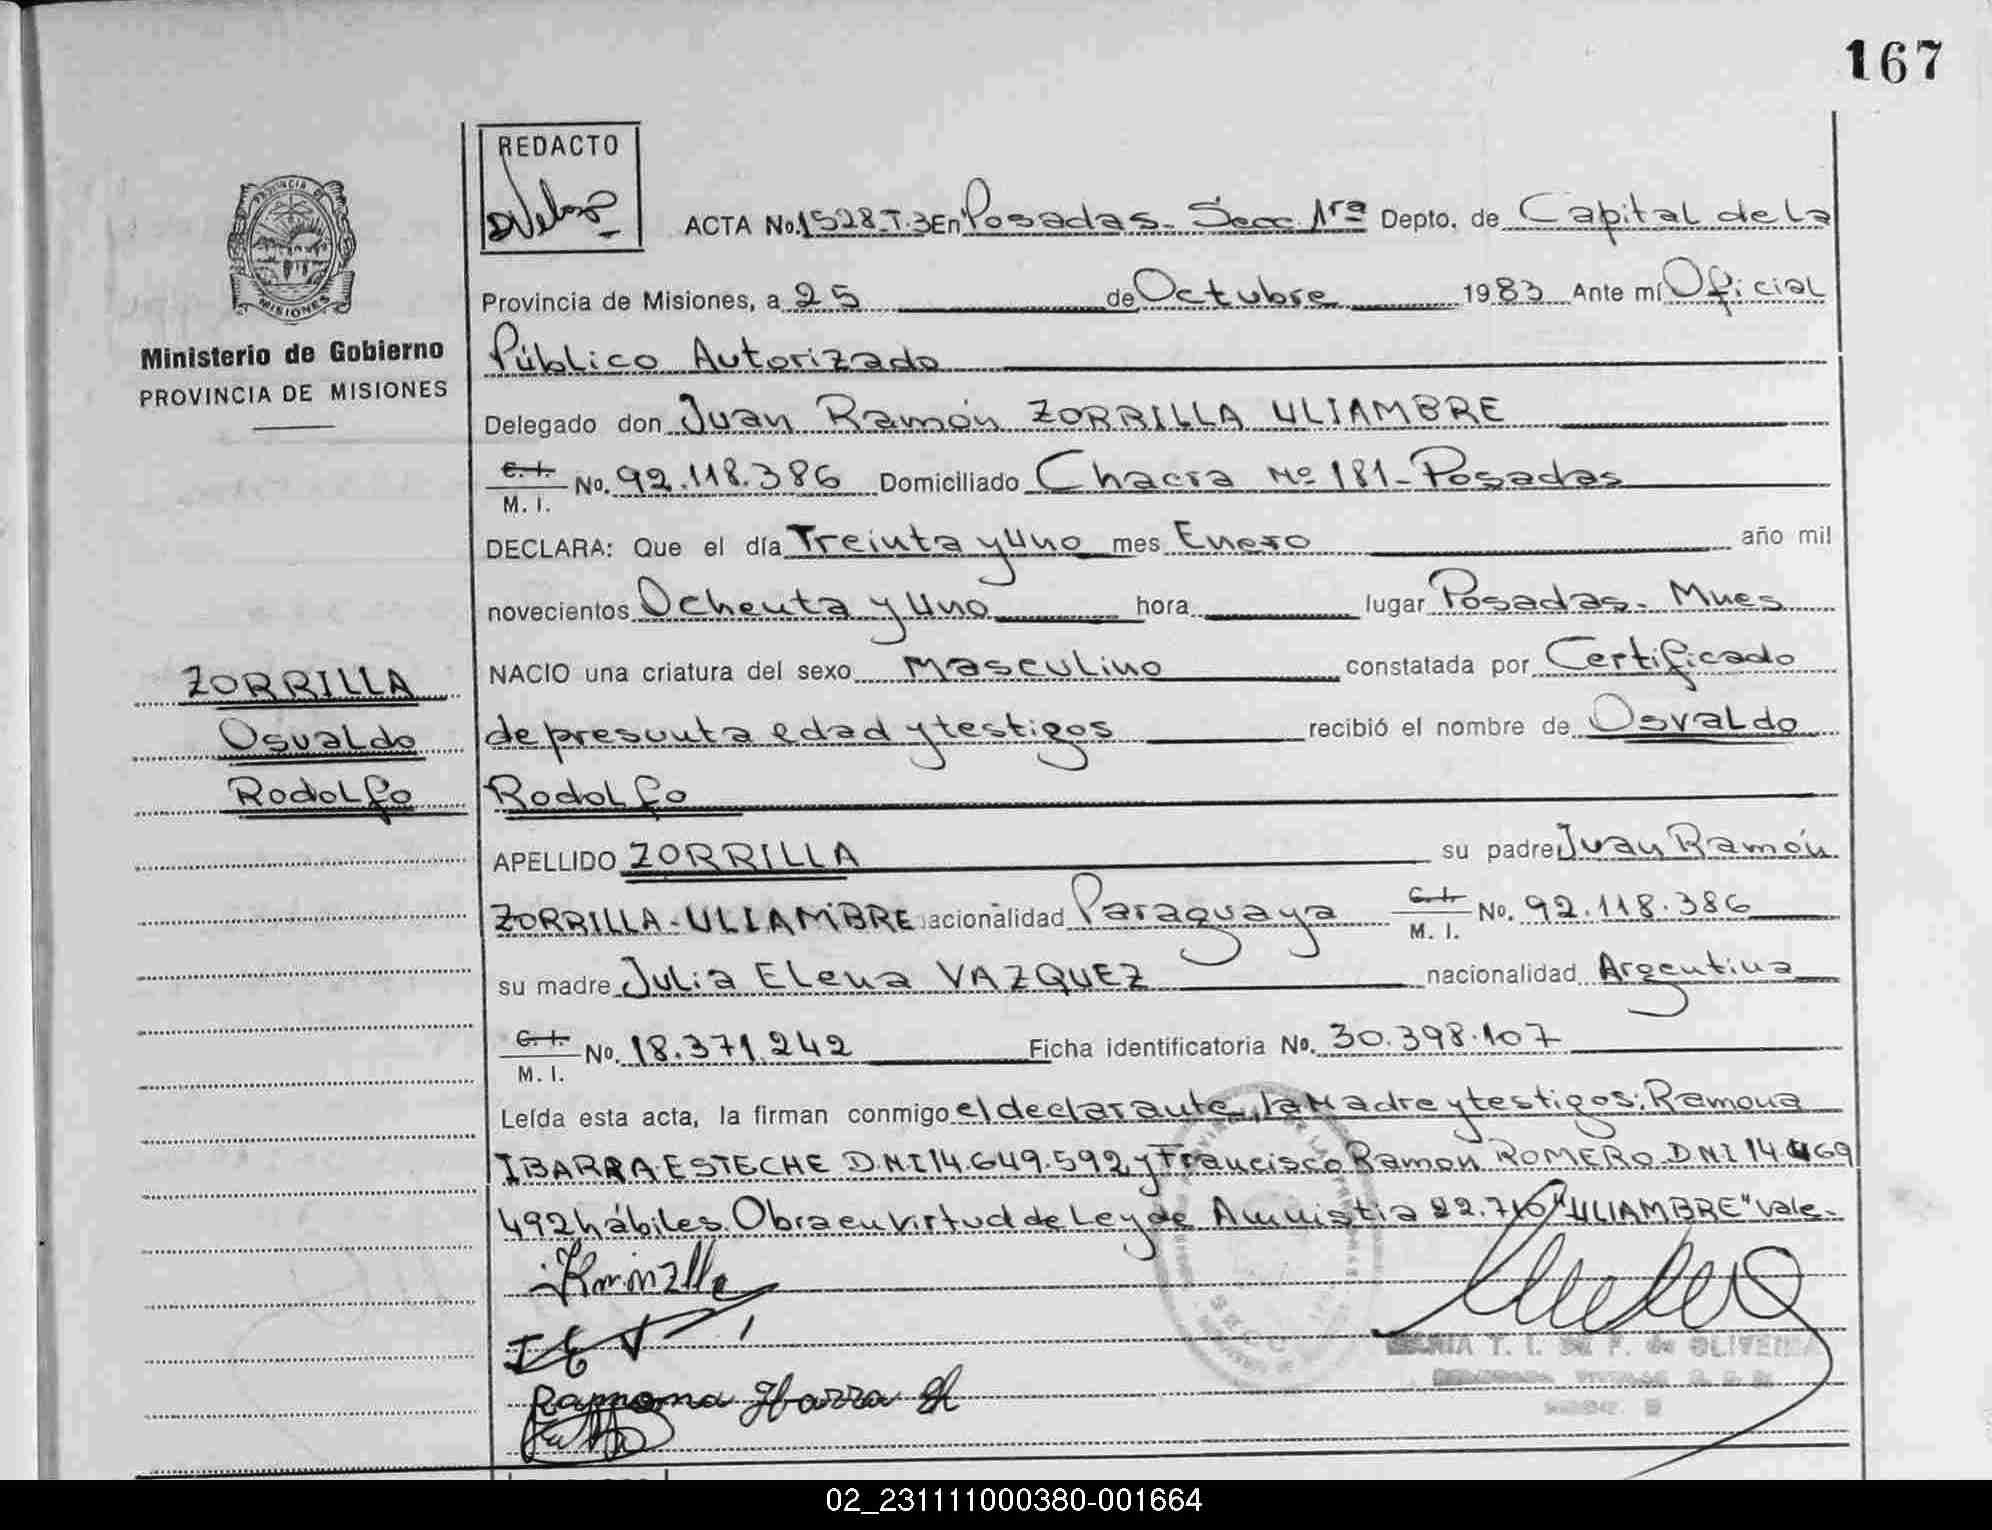 167
REDACTO
ACTA No. 1528-T.3 En Posadas-Secc. 1ra Depto. de Capital de la
Provincia de Misiones, a 25 de Octubre 1983 Ante mí Oficial
Público Autorizado
Delegado don Juan Ramón ZORRILLA ULIAMBRE
C. I. / M. I. No. 92.118.386 Domiciliado Chacra Nº 181-Posadas
DECLARA: Que el día Treinta y Uno mes Enero año mil
novecientos Ochenta y Uno hora lugar Posadas-Mnes
NACIO una criatura del sexo Masculino constatada por Certificado
de presunta edad y testigos recibió el nombre de Osvaldo
Rodolfo
APELLIDO ZORRILLA su padre Juan Ramón
ZORRILLA-ULIAMBRE nacionalidad Paraguaya C. I. / M. I. No. 92.118.386
su madre Julia Elena VAZQUEZ nacionalidad Argentina
C. I. / M. I. No. 18.371.242 Ficha identificatoria No. 30.398.107
Leída esta acta, la firman conmigo el declarante, la Madre y testigos: Ramona
IBARRA ESTECHE D.N.I 14.649.592 y Francisco Ramon ROMERO D.N.I 14.469
492 hábiles. Obra en virtud de Ley de Amnistia 22.710 "ULIAMBRE" vale-
J E V
Ramona Ibarra E
MARIA T. I. DE F. de OLIVEIRA
PROVINCIA DE
MISIONES
Ministerio de Gobierno
PROVINCIA DE MISIONES
ZORRILLA
Osvaldo
Rodolfo
02_231111000380-001664